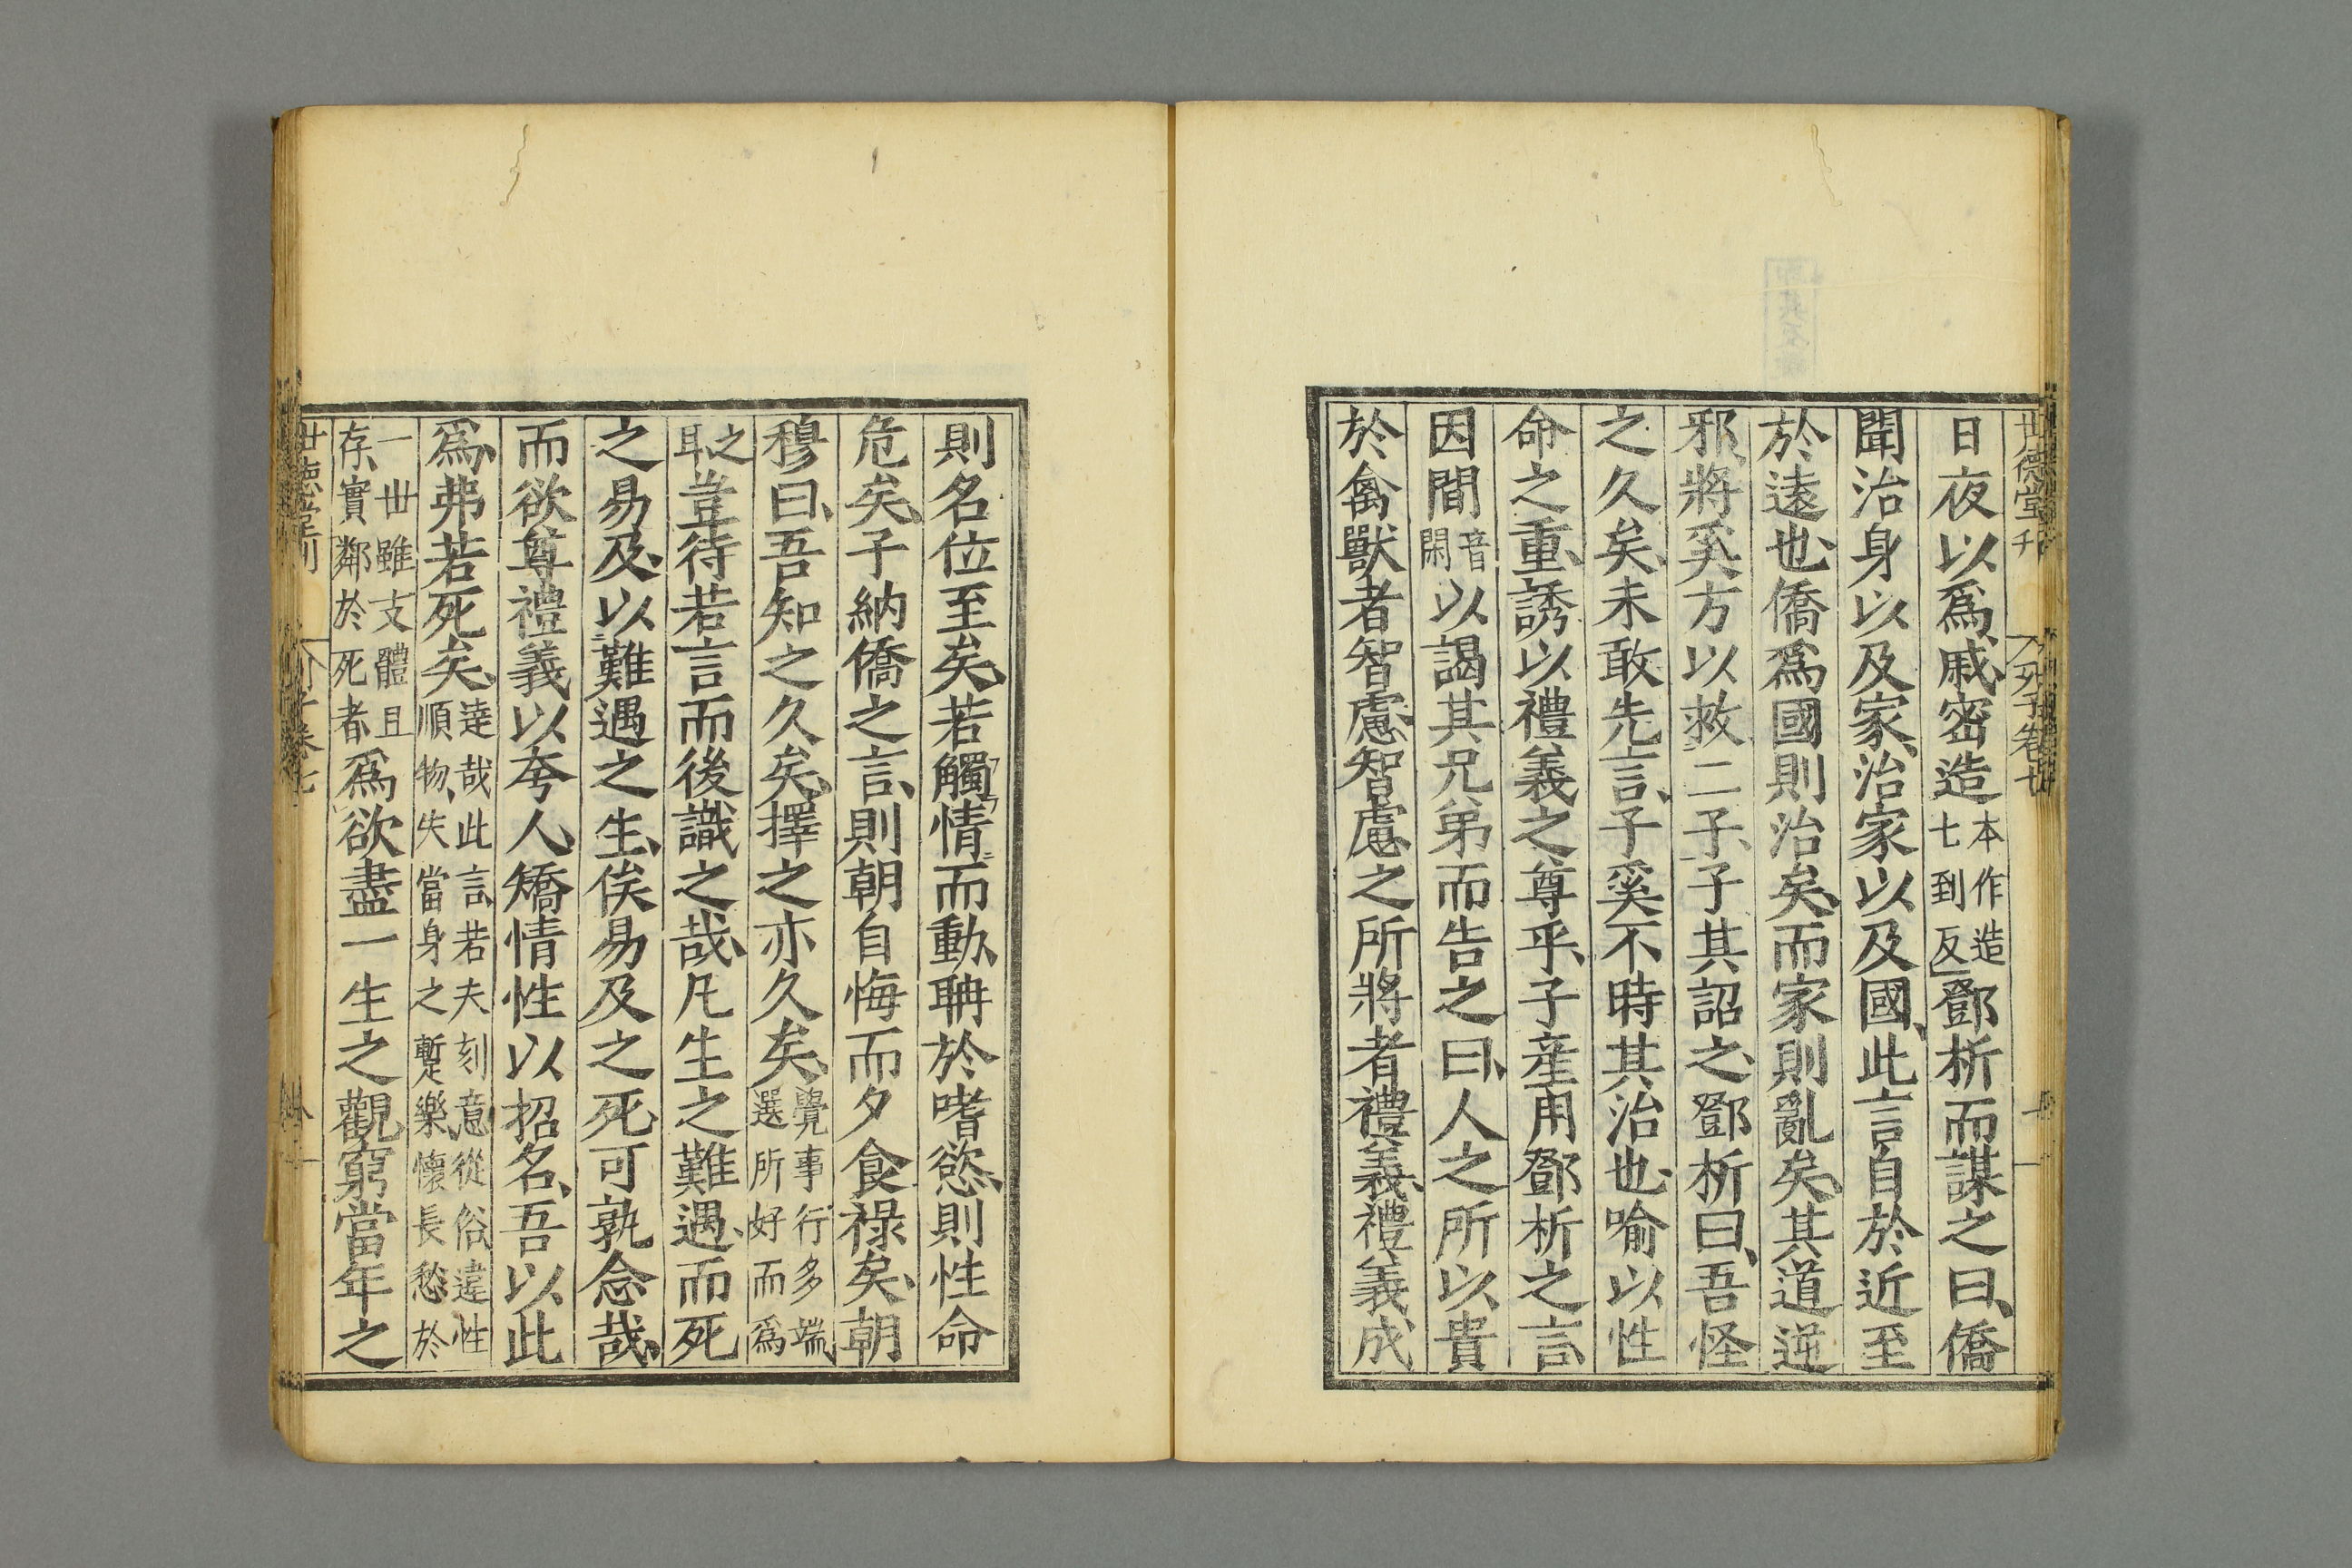 世德堂刊
列子卷七
日夜以爲戚密造本作造七到反鄧析而謀之曰僑
聞治身以及家治家以及國此言自於近至
於遠也僑爲國則治矣而家則亂矣其道逆
邪將奚方以救二子子其詔之鄧析曰吾怪
之久矣未敢先言子奚不時其治也喻以性
命之重誘以禮義之尊乎子産用鄧析之言
因間音閑以謁其兄弟而告之曰人之所以貴
於禽獸者智慮智慮之所將者禮義禮義成
則名位至矣若觸情而動聃於嗜慾則性命
危矣子納僑之言則朝自悔而夕食祿矣朝
穆曰吾知之久矣擇之亦久矣覺事行多端選所好而爲
之耳豈待若言而後識之哉凡生之難遇而死
之易及以難遇之生俟易及之死可孰念哉
而欲尊禮義以夸人矯情性以招名吾以此
爲弗若死矣達哉此言若夫刻意從俗違性順物失當身之暫樂懷長愁於
一世雖支體且存實鄰於死者爲欲盡一生之觀窮當年之
世德堂刊
卷七